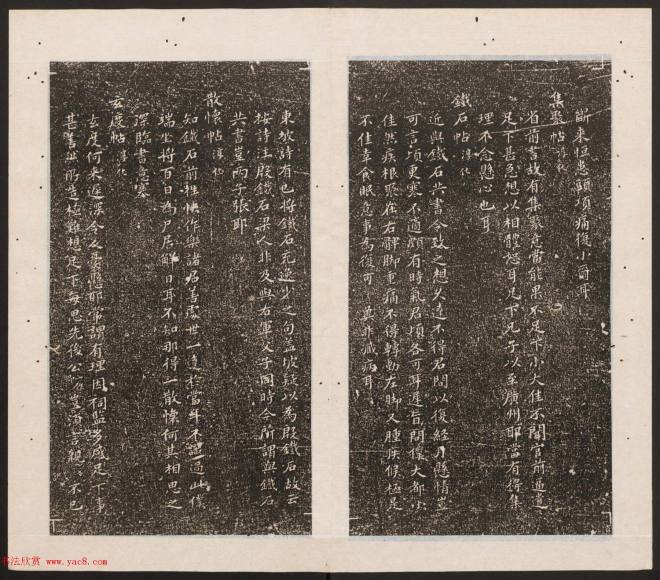 斷來恒患頭項痛復小爾耳
集聚帖淳化
省前書故有集聚意當能果不足下小大佳不聞官前逼遣
足下甚急想以相體恕耳足下兄子以至廣州耶當有得集
理不念懸心也耳
鐵石帖淳化
近與鐵石共書令致之想久達不得君問以復經月懸情豈
可言頃更寒不適頗有時氣君頃各可耳遲旨問僕大都小
佳然疾根聚在右髀脚重痛不得轉動左脚又腫疾候極是
不佳幸食眠意事為復可莫非臧病耳
東坡詩有也將鐵石充逸少之句並收疑以為殷鐵石故云
按詩注殷鐵石梁人非及與右軍父子同時今所謂與鐵石
共書豈兩子張耶
散懷帖淳化
知鐵石前推懐作與諸君書處世一達於當年不謂過此僕
端坐將百日為尸居解日耳不知那得一散懷何其相思之
深臨書意塞
玄度帖淳化
玄度何來遲深令人
甚善此所造極難想足下每思先後公為豈須言親不已
书法欣赏 www.yac8.com